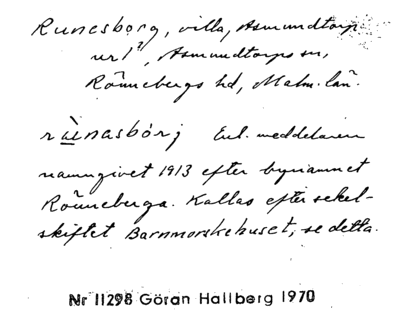 Runesborg, villa, Asmundtorp
nr 1²¹, Asmundtorps sn,
Rönnebergs hd, Malm. län.
rùnasbórj Enl. meddelaren
namngivet 1913 efter bynamnet
Rönneberga. Kallas efter sekel-
skiftet Barnmorskehuset, se detta.
Nr 11298 Göran Hallberg 1970